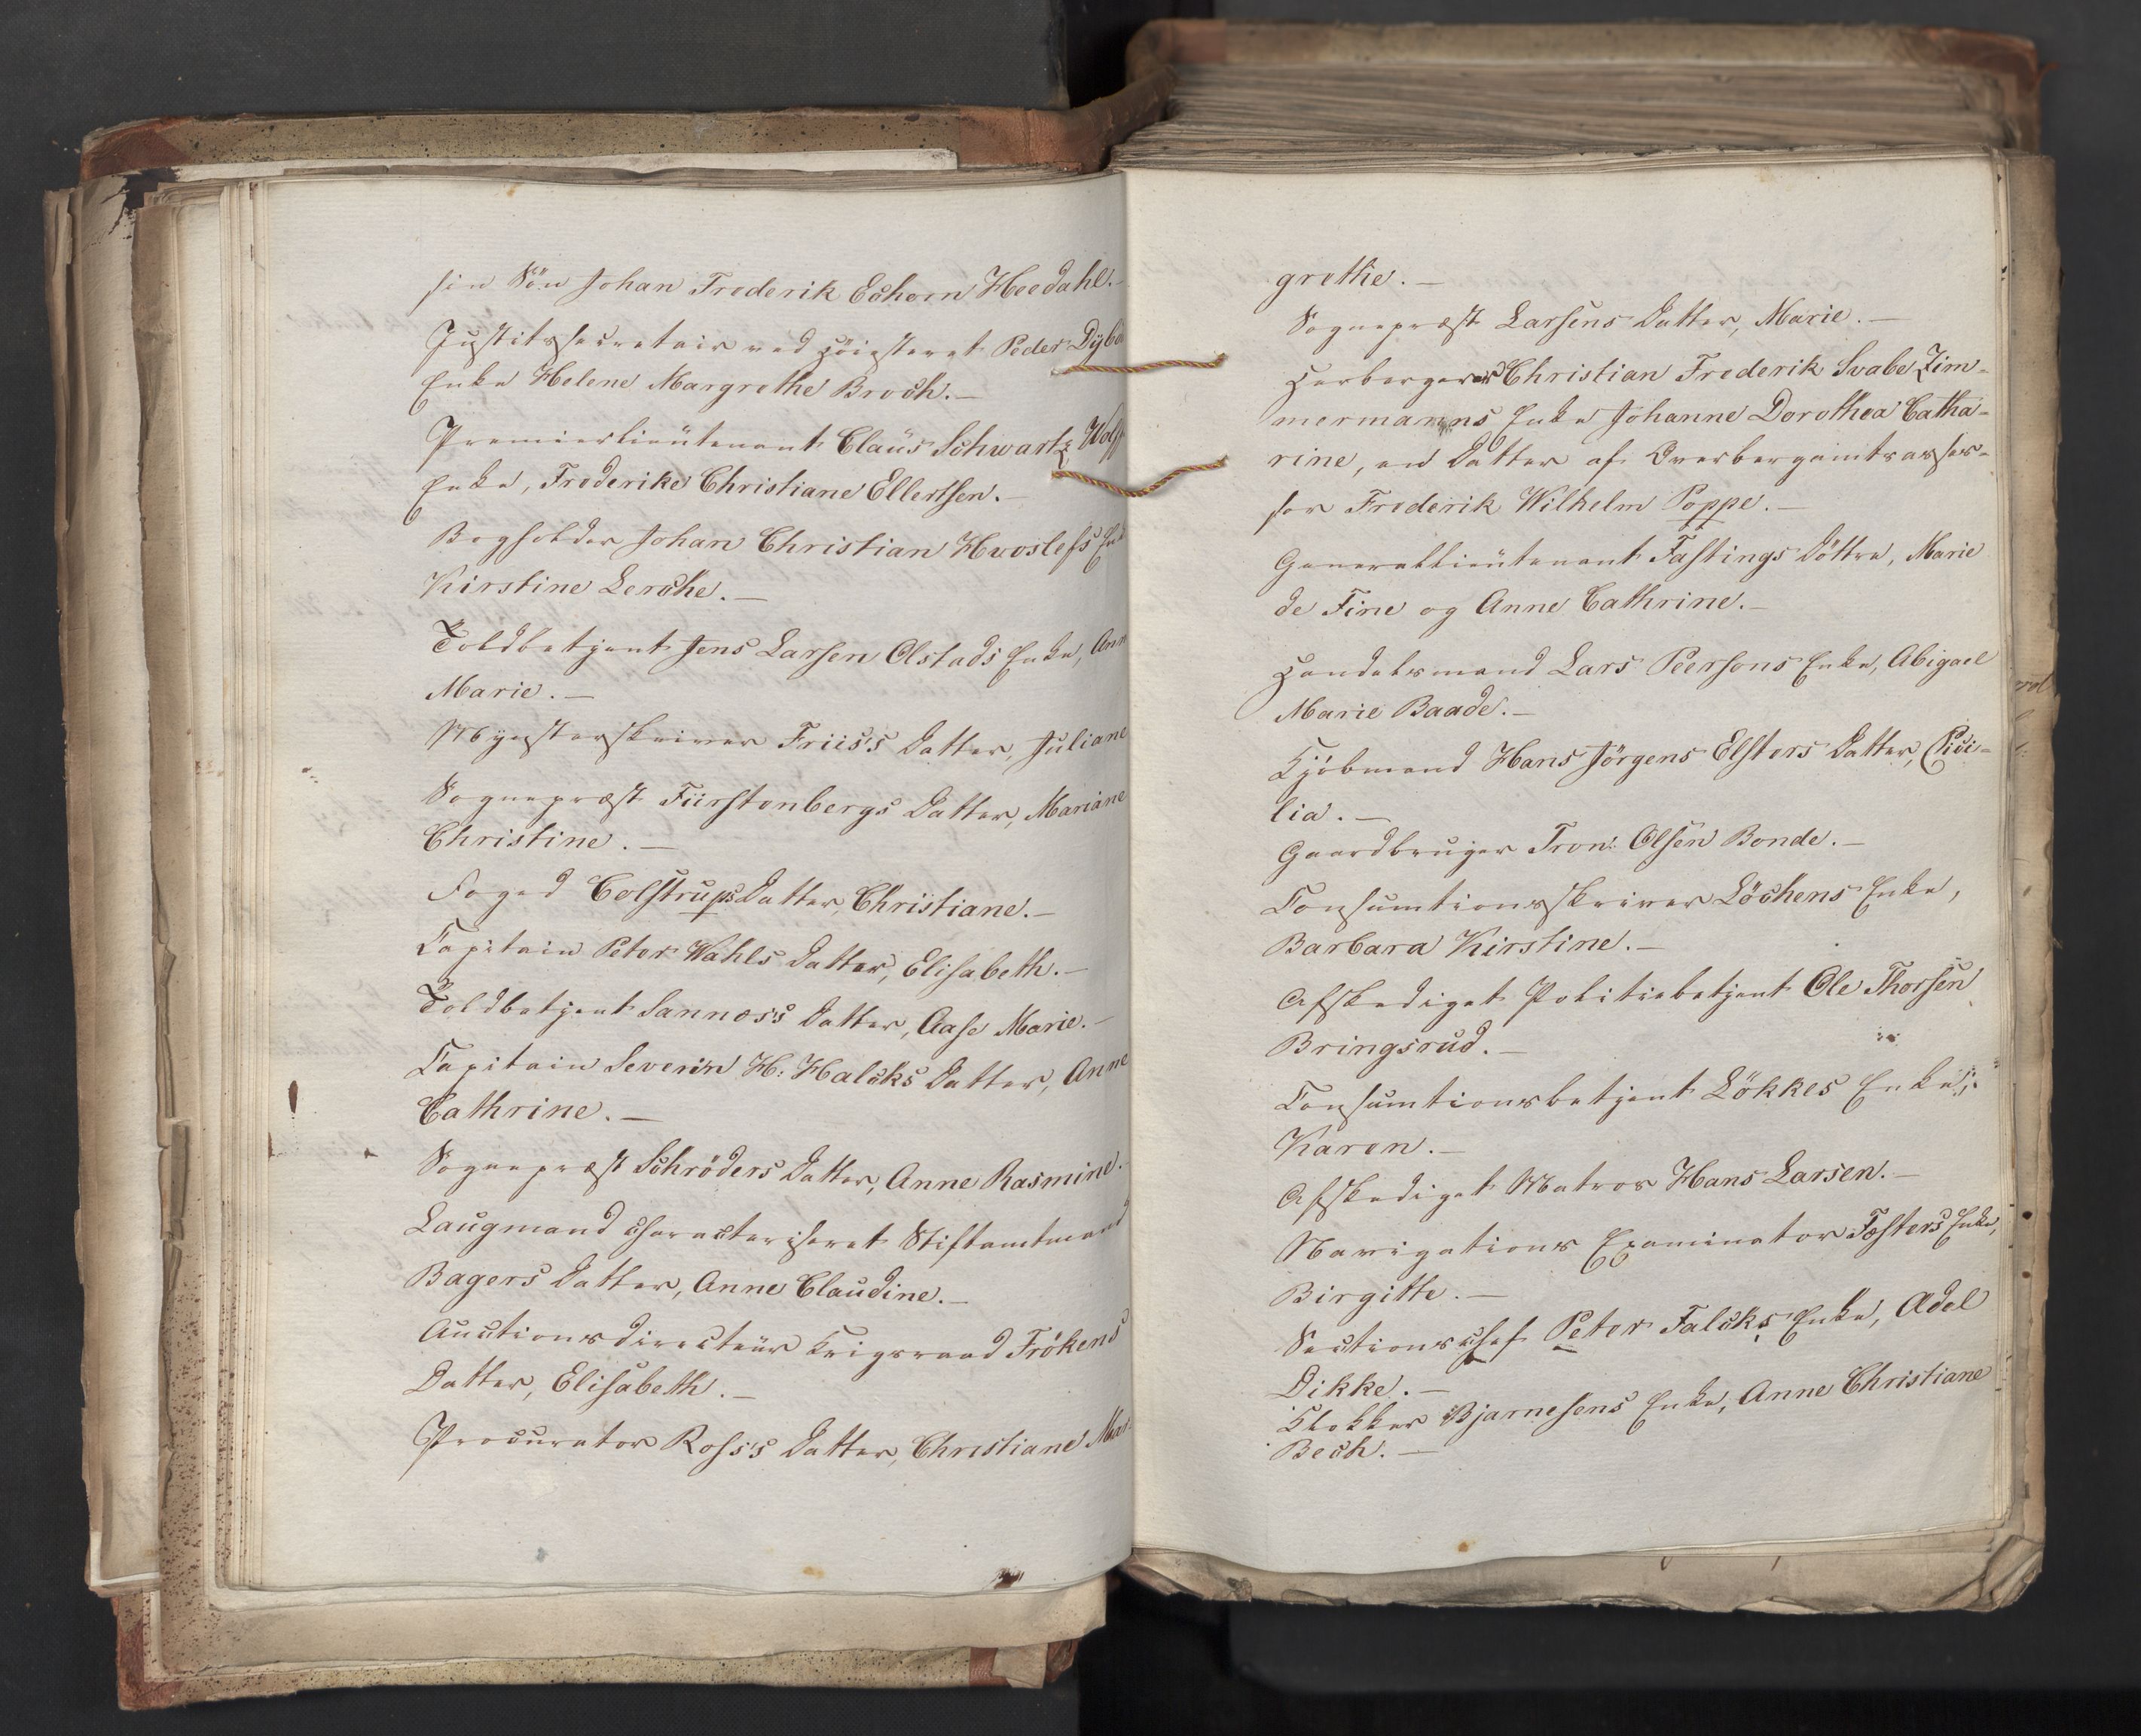 sin Sön Johan Frederik Eckorn Heedahl.–
Justitssecretair ved Höiesteret Peder Dybd
Enke Helene Margrethe Broch.–
Premierlieütenant Claüs Schwartz Wolff
Enke, Frederike Christiane Ellertsen.–
Bogholder Johan Christian Hvoslefs Enk
Kirstine Lerche.–
Toldbetjent Jens Larsen Olstads Enke, Ann
Marie.–
Mynsterskriver Friis's Datter, Juliane
Sognepræst Fürstenbergs Datter, Mariane
Christine.–
Foged Colstrups Datter, Christiane.–
Capitain Peter Wahls Datter, Elisabeth.–
Toldbetjent Sannes's Datter, Aase Marie.–
Capitain Severin H: Halcks Datter, Anne
Cathrine.–
Sognepræst Schröders Datter, Anne Rasmine.
Laugmand characteriseret Stiftamtmand
Bagers Datter, Anne Claudine.–
Auctionsdirecteür Krigsraad Frökens
Datter, Elisabeth.–
Procurator Ross's Datter, Christiane Mar-
grethe.–
Sognepræst Larsens Datter, Marie.–
Herbergerer Christian Frederik Svabe Zim-
mermanns Enke Johanne Dorothea Catha-
rine, en Datter af Overbergamtsasses-
sor Frederik Wilhelm Poppe.–
Generallieütenant Fastings Döttre, Marie
de Fine og Anne Cathrine.–
Handelsmand Lars Peersons Enke, Abigael
Marie Baade.–
Kjöbmand Hans Jörgens Elsters Datter, Civi-
lia.–
Gaardbruger Tron: Olsen Bonde.–
Consumtionsskriver Löchens Enke,
Barbara Kirstine.–
Afskediget Politiebetjent Ole Thorsen
Bringsrud.–
Consumtionsbetjent Lökkes Enke,
Karen.–
Afskediget Matros Hans Larsen.–
Navigations Examinator Fæsters Enke,
Birgitte.–
Sectionschef Peter Falcks Enke, Adel
Dikke.–
Klokker Bjarnesens Enke, Anne Christiane
Bech.–